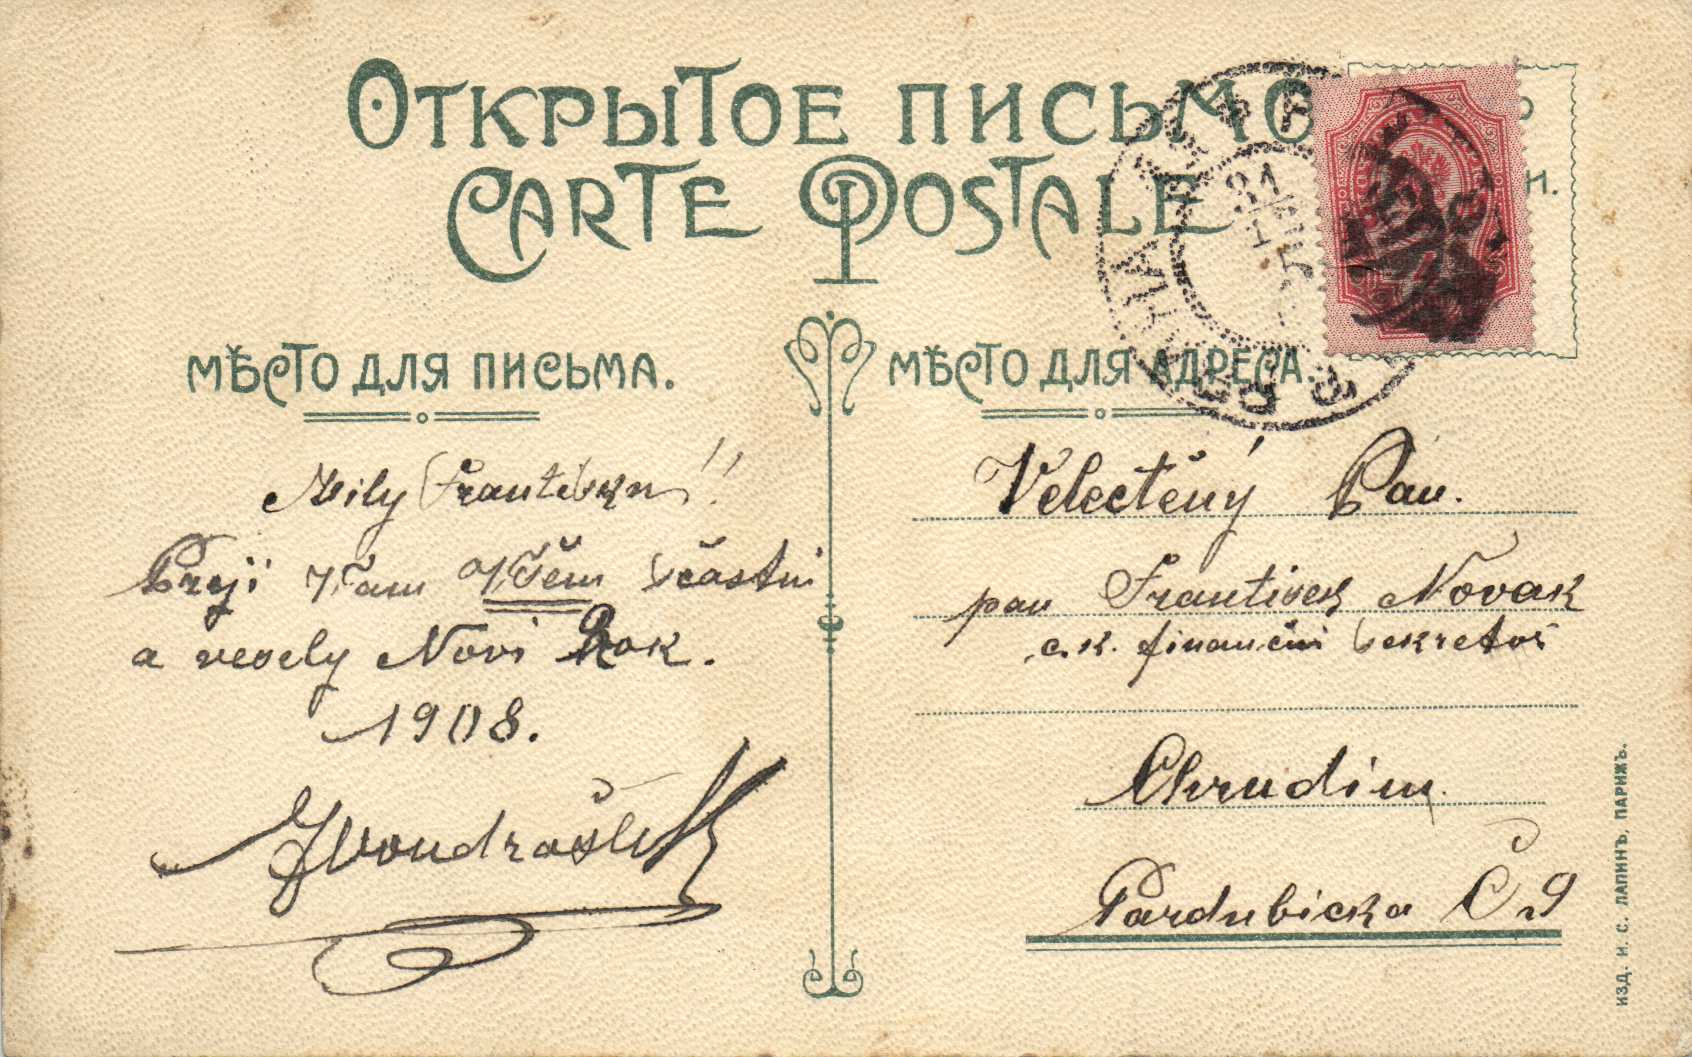 ОТКРЫТОЕ ПИСЬМО
CARTE POSTALE
МѢСТО ДЛЯ ПИСЬМА.
Mily Frantisku!!
Preji Vam Všěm sčastni
a vesely Novi Rok.
1908.
JVondrašek
МѢСТО ДЛЯ АДРЕСА.
Velectěný Pan.
pan Frantisek Novak
c.k. finančni sekretoř
Chrudim.
Pardubicka Č 9
ИЗД. И. С. ЛАПИНЪ, ПАРИЖЪ.